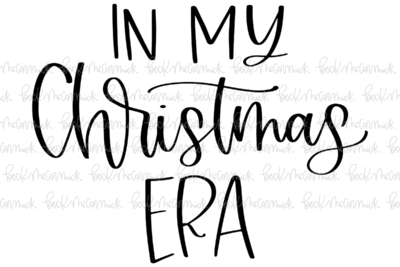 IN MY
Christmas
ERA